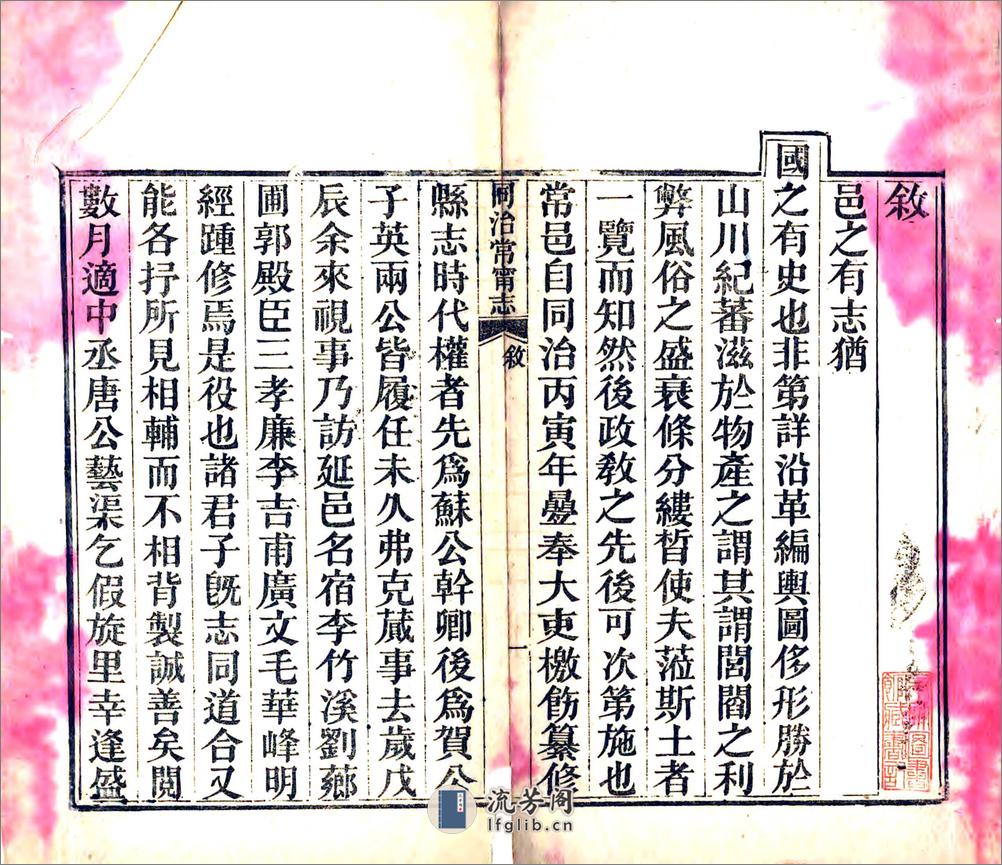 敘
邑之有志猶
國之有史也非第詳沿革編輿圖侈形勝於
山川紀蕃滋於物產之謂其謂閭閻之利
弊風俗之盛衰條分縷晳使夫蒞斯土者
一覽而知然後政敎之先後可次第施也
常邑自同治丙寅年疊奉大吏檄飭纂修
同治常甯志
敘
一
縣志時代權者先爲蘇公幹卿後爲賀公
子英兩公皆履任未久弗克蕆事去歲戊
辰余來視事乃訪延邑名宿李竹溪劉薌
圃郭殿臣三孝廉李吉甫廣文毛華峰明
經踵修焉是役也諸君子旣志同道合又
能各抒所見相輔而不相背製誠善矣閱
數月適中丞唐公藝渠乞假旋里幸逢盛
流芳阁
lfglib.cn